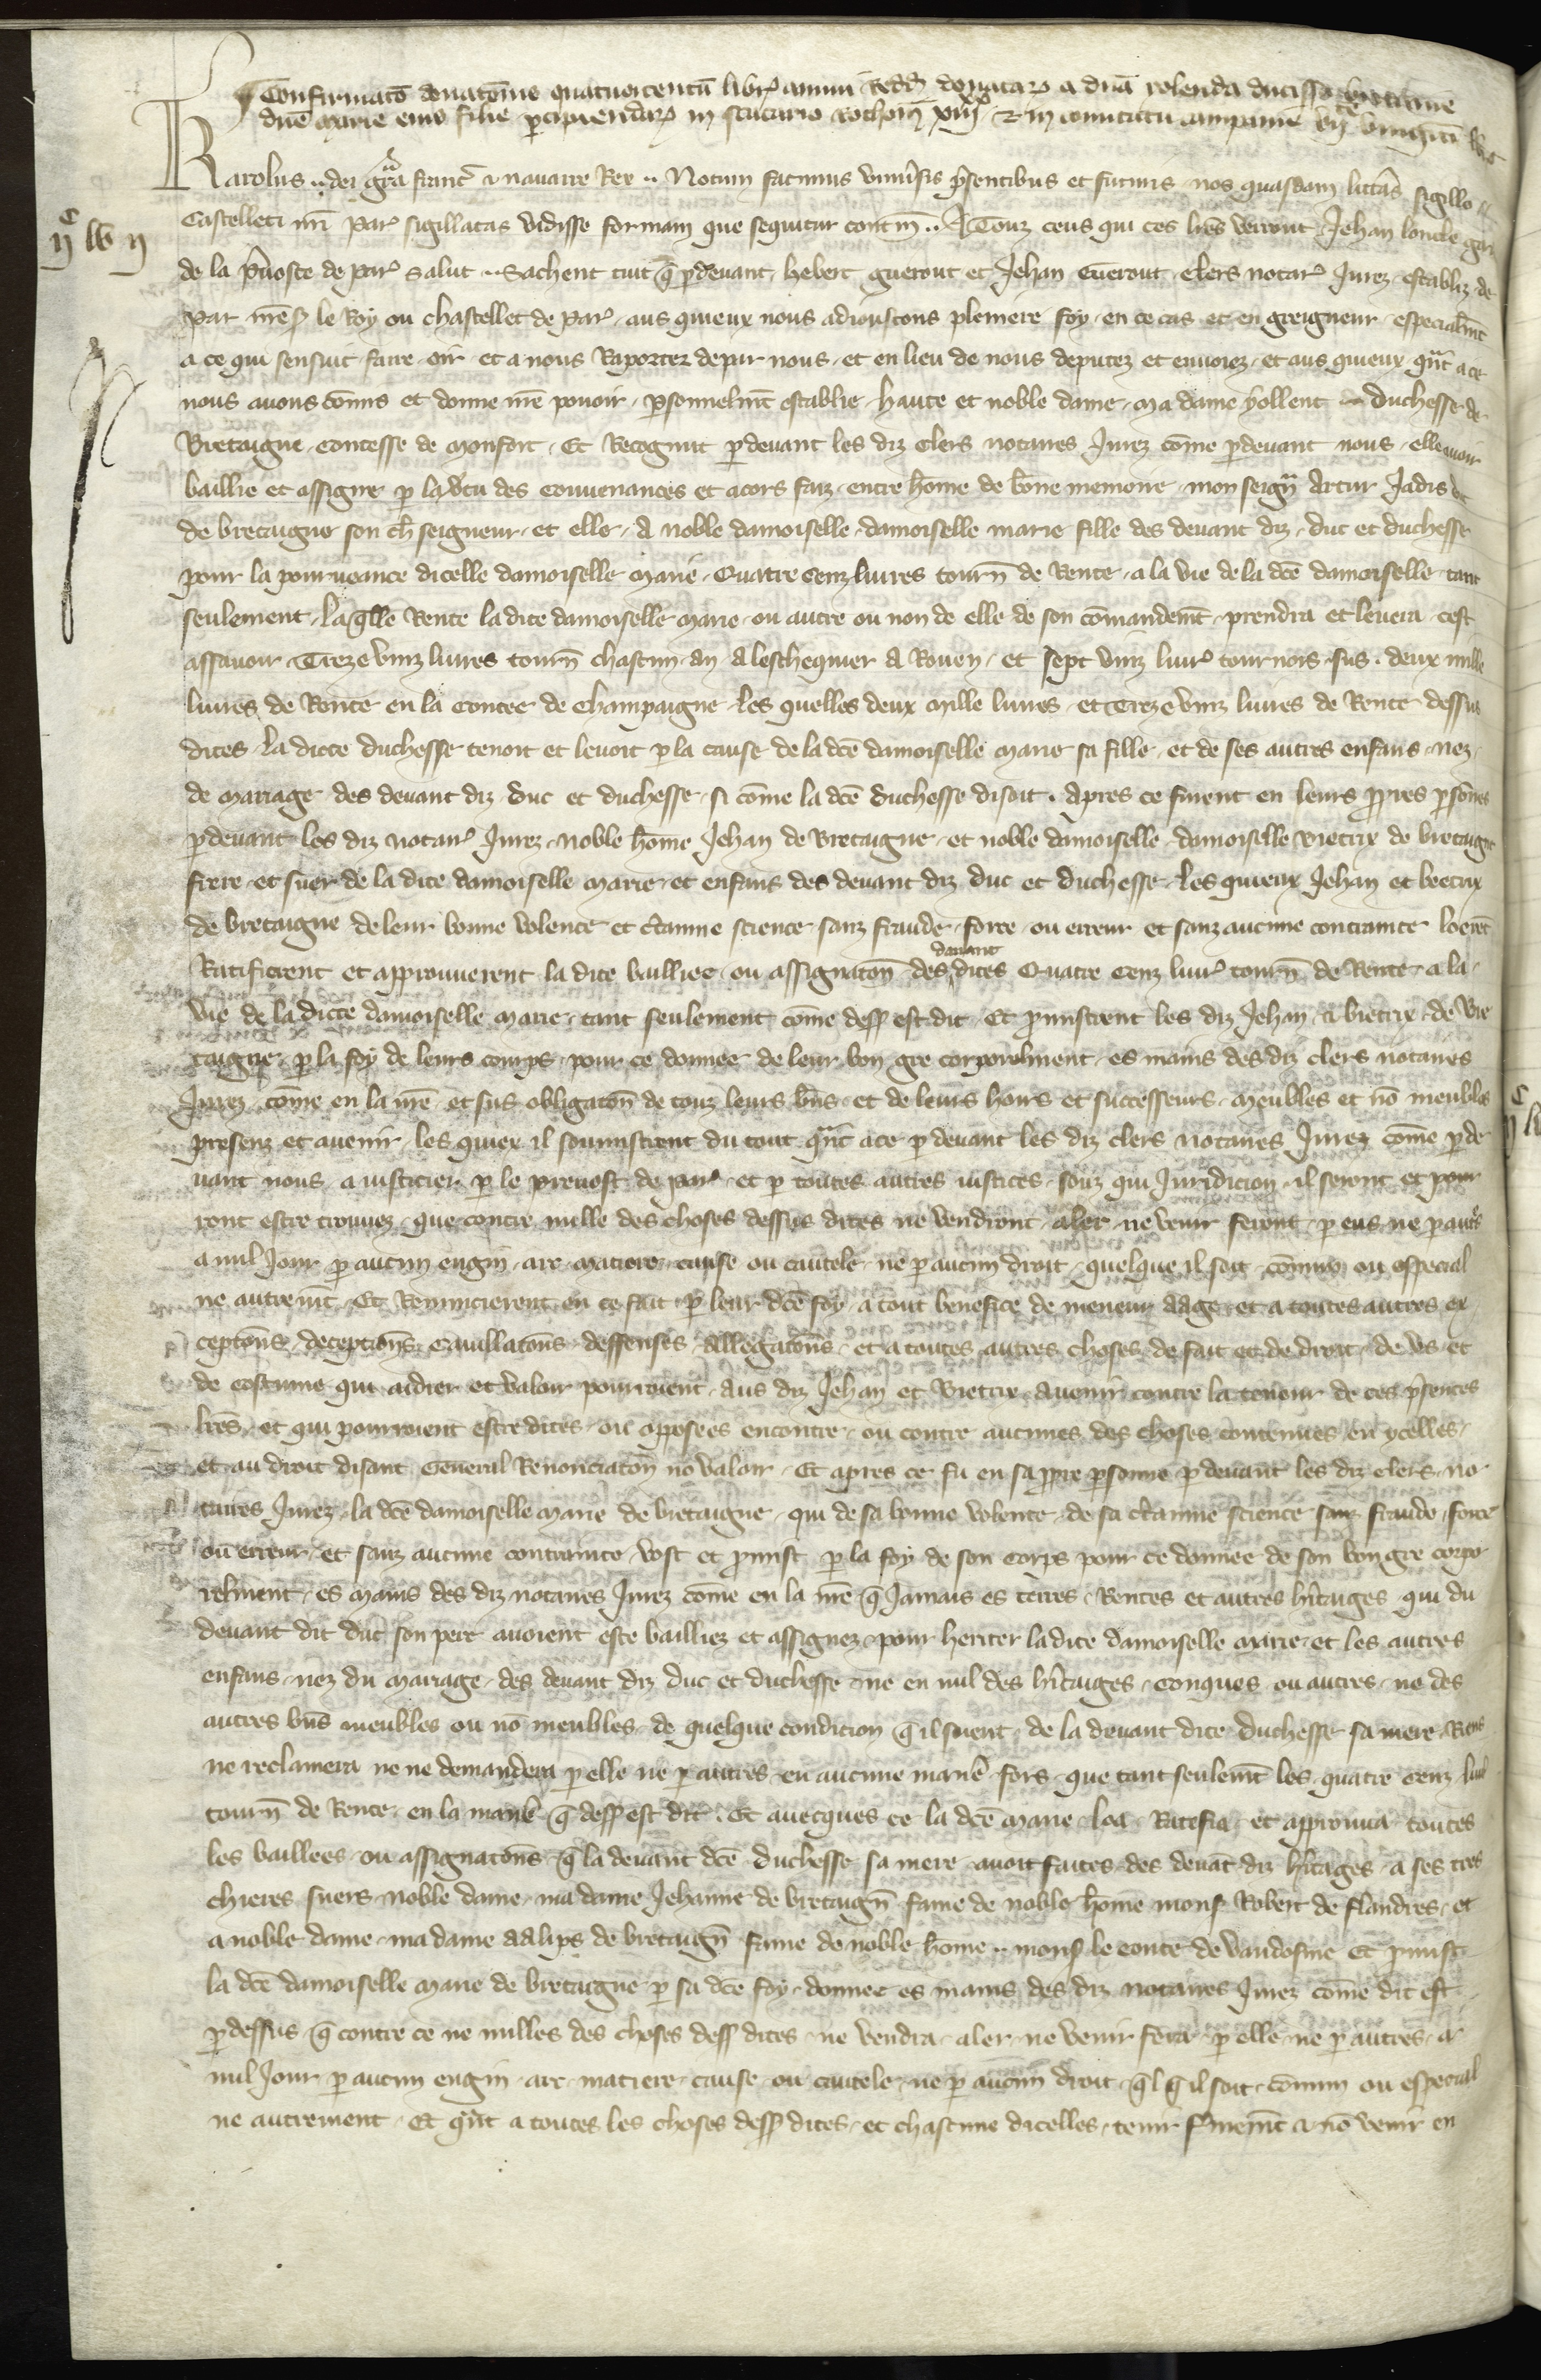 Confirmatō donatōnis quatuorcentū libr̄ annui Redd donatar̄ a dnā yolenda ducissa britanie
dnē Marie eius filie percipiendar̄ in scacario Rothom̄ xiii xx et in comitatu campanie vii xx
Karolus .. dei gr̄a franc̄ et nauarre Rex .. Notum facimus vniuersis p̄sentibus et futuris nos quasdam litt̄as sigillo
Castelleti nr̄i par̄ sigillatas vidisse formam que sequitur contin̄ .. A Touz ceus qui ces lr̄es verront Jehan loncle gar
ii c lv ii
de la p̄uoste de par̄ salut .. Sachent tuit q̄ p̄deuant hebert guerout et Jehan Guerout clers notar̄ Jurez establiz de
par nr̄e s le Roy ou chastellet de par̄ aus quieux nous adioustons pleniere foy en ce cas et en greigneur especialm̄t
a ce qui sensuit faire oir et a nous Raporter de par nous et en lieu de nous deputez et enuoiez et aus quieux quāt a ce
nous auons cōmis et donne nr̄e pouoir p̄sonnelm̄t establie haute et noble dame ma dame yollent duchesse de
Bretaigne contesse de Monfort Et Recognut p̄deuant les diz clers notaires Jurez cōme p̄deuant nous elle auoir
baillie et assigne p̄ la v̄tu des conuenances et acors faiz entre hōme de bōne memoire mon seign̄ Artur Jadis
de bretaigne son ch̄ seigneur et elle A noble damoiselle damoiselle marie fille des deuant diz duc et duchesse
pour la pourueance dicelle damoiselle Marie Quatre cenz liures tourn̄ de Rente a la vie de la dcē damoiselle tant
seulement La q̄lle Rente la dite damoiselle Marie ou autre ou non de elle de son cōmandem̄t prendra et leuera cest
assauoir Treze vinz liures tourn̄ chascun an a leschequier a Rouen et sept vinz liur̄ tournois sus deux mille
liures de Rente en la Contee de Champaigne les quelles deux Mille liures et Treze vinz liures de Rente dessus
dites la dicte duchesse tenoit et leuoit p̄ la cause de la dcē damoiselle Marie sa fille et de ses autres enfans nez
de Mariage des deuant diz duc et duchesse si cōme la dcē duchesse disoit . Apres ce furent en leurs p̄pres p̄sōnes
p̄deuant les diz notar̄ Jurez noble hōme Jehan de Bretaigne et noble damoiselle damoiselle Bietrix de bretaigne
frere et suer de la dite damoiselle Marie et enfans des deuant diz duc et duchesse les quieux Jehan et beetrix
de bretaigne de leur bonne volente et c̄tainne science sanz fraude force ou erreur et sanz aucune contrainte loerēt
Ratifierent et approuuerent la dite bailliee ou assignatōn des deuant dites Quatre cenz liur̄ tourn̄ de Rente a la
vie de la dicte damoiselle Marie tant seulement cōme dess est dit Et p̄mistrent les diz Jehan et bietrix de Bre
taigne p̄ la foy de leurs corps pour ce donnee de leur bon gre corporelment es mains des diz clers notaires
Jurez cōme en la nr̄e et sus obligatōn de touz leurs bn̄s et de leurs hoirs et successeurs meubles et nō meubles
presenz et auenir les quiex il soumistrent du tout quāt a ce p̄ deuant les diz clers notaires Jurez cōme p̄de
uant nous a iusticier p̄ le preuost de par̄ et p̄ toutes autres iustices souz qui Juridicion il seront et pour
ront estre trouuez que contre nulle des choses dessus dites ne vendront aler ne venir feront p̄ eus ne p̄ autr̄s
a nul Jour p̄ aucun engin art matiere cause ou cautele ne p̄ aucun droit quelque il soit cōmun ou especial
ne autrem̄t Et Renuncierent en ce fait p̄ leur dcē foy a tout benefice de meneur aage et a toutes autres ex
ceptōns deceptions Cauillatōns deffenses Allegatōns et a toutes autres choses de fait et de droit de vs et
de costume qui aidier et valoir pourroient aus diz Jehan et Bietrix a venir contre la teneur de ces p̄sentes
lr̄es et qui pourroient estre dites ou oposees encontre ou contre aucunes des choses contenues en ycelles
et au droit disant General Renonciatōn nō valoir Et apres ce fu en sa p̄pre p̄sonne p̄ deuant les diz clers no
taires Jurez la dcē damoiselle Marie de bretaigne qui de sa bonne volente de sa c̄tainne science sanz fraude force
ou erreur et sanz aucune contrainte vost et p̄mist p̄ la foy de son corps pour ce donnee de son bon gre corpo
relment es Mains des diz notaires Jurez cōme en la nr̄e q̄ Jamais es terres Rentes et autres hr̄itages qui du
deuant dit duc son pere auoient este bailliez et assignez pour heriter la dite damoiselle Marie et les autres
enfans nez du Mariage des deuant diz duc et duchesse ne en nul des hr̄itaiges conques ou autres ne des
autres bn̄s meubles ou nō meubles de quelque condicion q̄ il suent de la deuant dite duchesse sa mere Riens
ne reclamera ne ne demandera p̄ elle ne p̄ autres en aucune maniē fors que tant seulem̄t les quatre cenz liur̄
tourn̄ de Rente en la maniē q̄ dess est dit . Et auecques ce la dcē Marie loa Ratefia et approuua toutes
les baillees ou assignatōns q̄ la deuant dcē duchesse sa mere auoit faites des deuāt diz hr̄itages a ses tres
chieres suers noble dame ma dame Jehanne de bretaign̄ fame de noble hōme mons Robert de flandres et
a noble dame ma dame aalips de bretaign̄ fame de noble hōme .. mons le conte de vandosme Et p̄mist
la dcē damoiselle Marie de bretaigne p̄ sa dcē foy donnee es mains des diz notaires Jurez cōme dit est
p̄dessus q̄ contre ce ne nulles des choses dess dites ne vendra aler ne venir fera p̄ elle ne p̄ autres a
nul Jour p̄ aucun engin art matiere cause ou cautele ne p̄ aucun droit q̄l q̄ il soit cōmun ou especial
ne autrement Et quāt a toutes les choses dess dites et chascune dicelles tenir f̄mem̄t et nō venir en